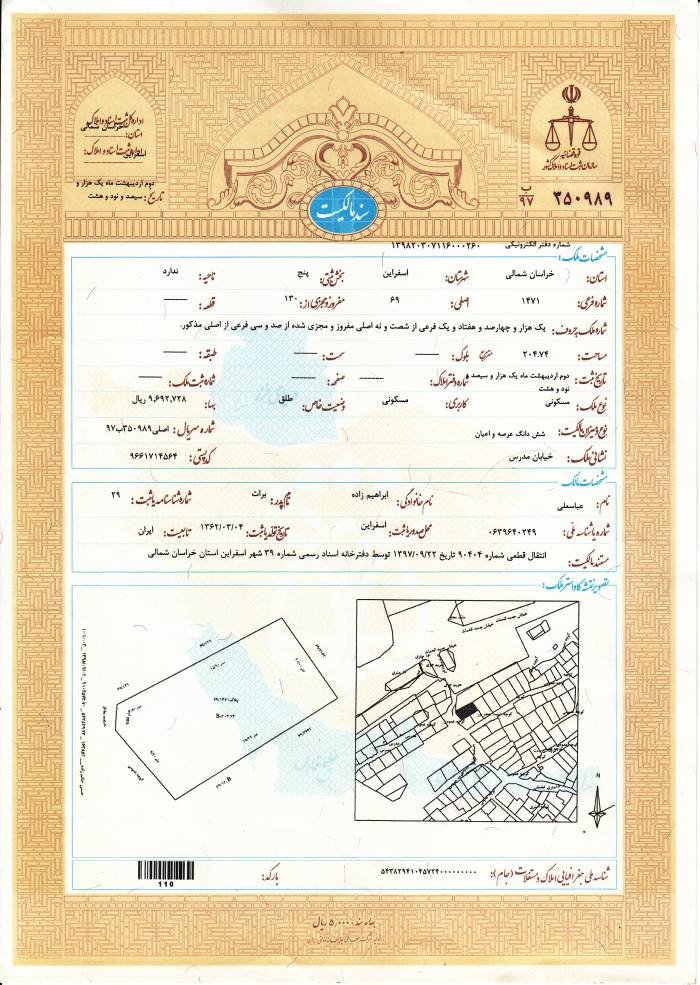 اداره کل ثبت اسناد و املاک
استان: خراسان شمالی
اداره ثبت اسناد و املاک: اسفراین
تاریخ: دوم اردیبهشت ماه یک هزار و سیصد و نود و هشت
قوه قضائیه
سازمان ثبت اسناد و املاک کشور
ب ۹۷ ۳۵۰۹۸۹
سند مالکیت
شماره دفتر الکترونیکی ۱۳۹۸۲۰۳۰۷۱۱۶۰۰۰۲۶۰
مشخصات ملک:
استان: خراسان شمالی شهرستان: اسفراین بخش ثبتی: پنج ناحیه: ندارد
شماره فرعی: ۱۴۷۱ اصلی: ۶۹ مفروز و مجزی از: ۱۳۰ قطعه: ------
شماره ملک بحروف: یک هزار و چهارصد و هفتاد و یک فرعی از شصت و نه اصلی مفروز و مجزی شده از صد و سی فرعی از اصلی مذکور.
مساحت: ۲۰۴.۷۴ مترمربع بلوک: ------ سمت: ------ طبقه: ------
تاریخ ثبت: دوم اردیبهشت ماه یک هزار و سیصد و نود و هشت شماره دفتر املاک: ------ صفحه: ------ شماره ثبت ملک: ------
نوع ملک: مسکونی کاربری: مسکونی وضعیت خاص: طلق بهاء: ۹,۶۹۲,۷۲۸ ریال
نوع و میزان مالکیت: شش دانگ عرصه و اعیان شماره سریال: اصلی۳۵۰۹۸۹ب۹۷
نشانی ملک: خیابان مدرس کد پستی: ۹۶۶۱۷۱۴۵۶۴
مشخصات مالک
نام: عباسعلی نام خانوادگی: ابراهیم زاده نام پدر: برات شماره شناسنامه یا ثبت: ۲۹
شماره یا شناسه ملی: ۰۶۳۹۶۴۰۲۴۹ محل صدور یا ثبت: اسفراین تاریخ تولد یا ثبت: ۱۳۶۲/۰۳/۰۴ تابعیت: ایران
مستند مالکیت: انتقال قطعی شماره ۹۰۴۰۴ تاریخ ۱۳۹۷/۰۹/۲۲ توسط دفترخانه اسناد رسمی شماره ۳۹ شهر اسفراین استان خراسان شمالی
تصویر نقشه کاداستر ملک:
N
شناسه ملی جغرافیایی املاک و مستغلات (جام): ۵۴۳۸۲۹۴۱۰۴۵۷۲۴۰۰۰۰۰۰۰۰۰
بارکد:
110
بهاء سند: ۵,۰۰۰ ریال